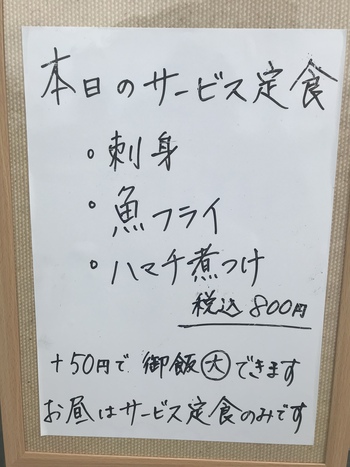 本日のサービス定食
• 刺身
• 魚フライ
• ハマチ煮つけ
税込 800円
+50円で 御飯大できます
お昼はサービス定食のみです